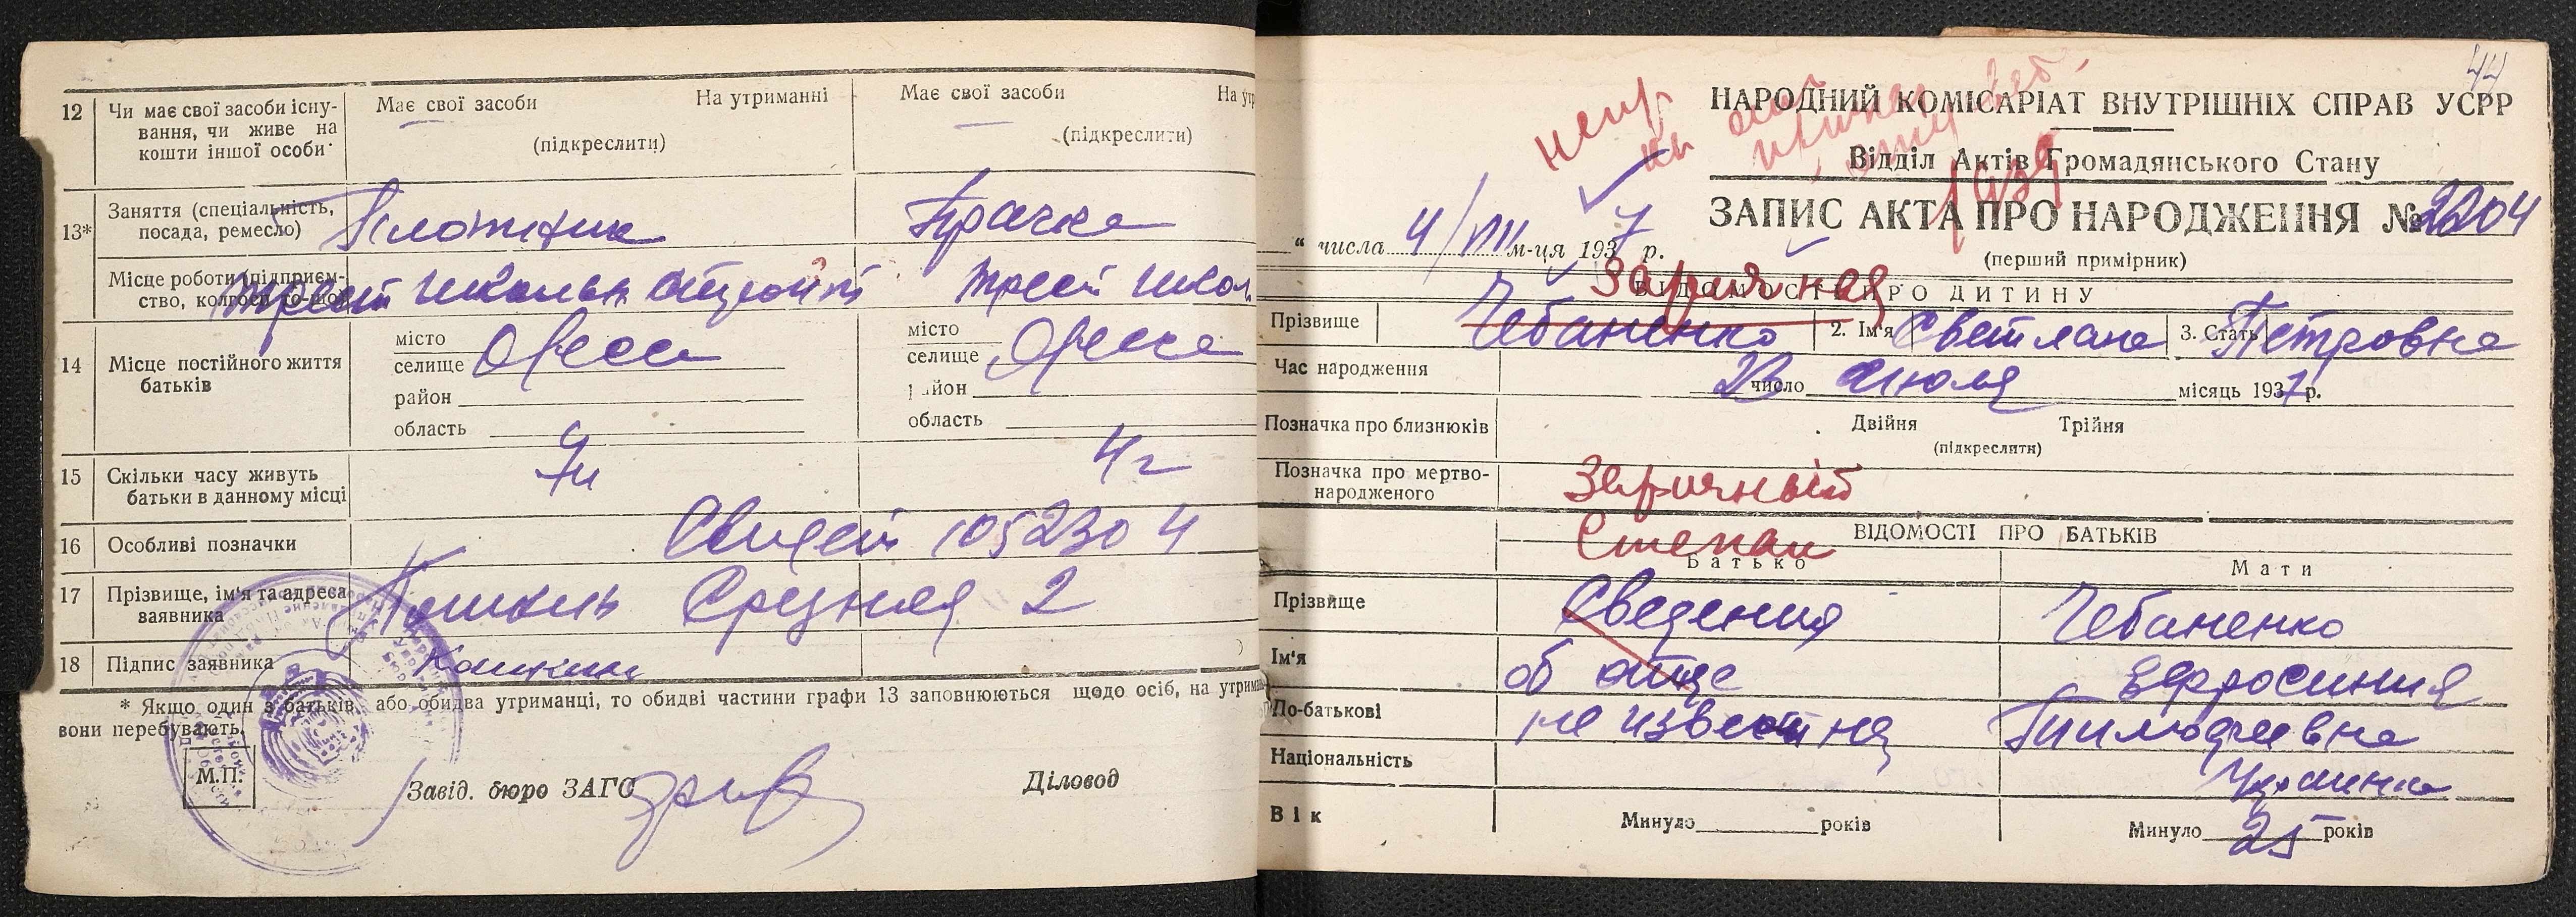 12 Чи має свої засоби існу- Має свої засоби На утриманні Має свої засоби На утр
вання, чи живе на
кошти іншої особи (підкреслити) (підкреслити)
13* Заняття (спеціальність, Плотник Прачка
посада, ремесло)
Місце роботи (підприєм- трест школьн трест школ
ство, колгосп то-що)
14 Місце постійного життя місто Одесса місто Одесса
батьків селище селище
район район
область область
15 Скільки часу живуть 4 г
батьки в данному місці
16 Особливі позначки 105230 4
17 Прізвище, ім'я та адреса Средняя 2
заявника
18 Підпис заявника
* Якщо один з батьків, або обидва утриманці, то обидві частини графи 13 заповнюються щодо осіб, на утриман
вони перебувають.
М.П. Завід. бюро ЗАГС Діловод
44
НАРОДНИЙ КОМІСАРІАТ ВНУТРІШНІХ СПРАВ УСРР
Відділ Актів Громадянського Стану
1939
ЗАПИС АКТА ПРО НАРОДЖЕННЯ № 2204
" числа 4/VIII м-ця 1937 р. (перший примірник)
Заричная
ВІДОМОСТІ ПРО ДИТИНУ
Прізвище Чебаненко 2. Ім'я Светлана 3. Стать Петровна
Час народження 23 число Июля місяць 1937 р.
Позначка про близнюків Двійня Трійня
(підкреслити)
Позначка про мертво- Заричный
народженого
Степан
ВІДОМОСТІ ПРО БАТЬКІВ
Батько Мати
Прізвище Сведения Чебаненко
Ім'я об отце Ефросиния
По-батькові не известна Тимофеевна
Національність Украинка
Вік Минуло років Минуло 25 років